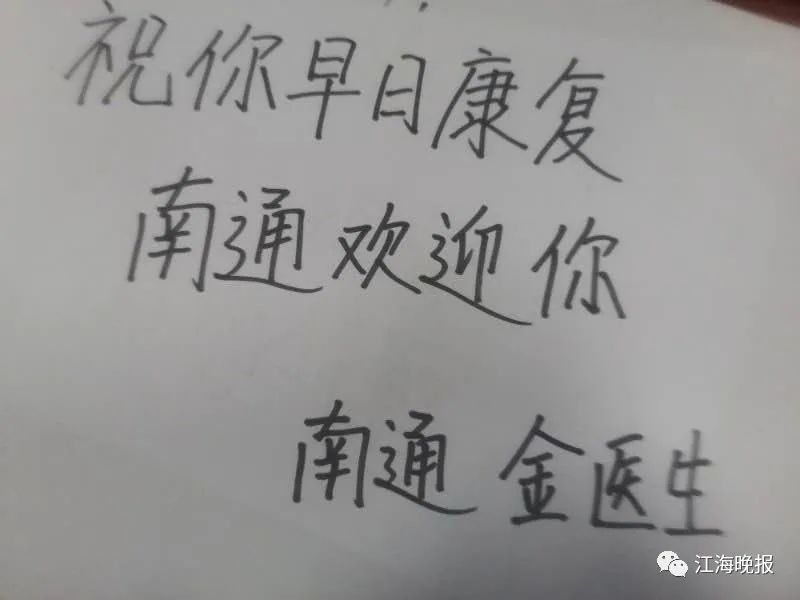 祝你早日康复
南通欢迎你
南通 金医生
江海晚报